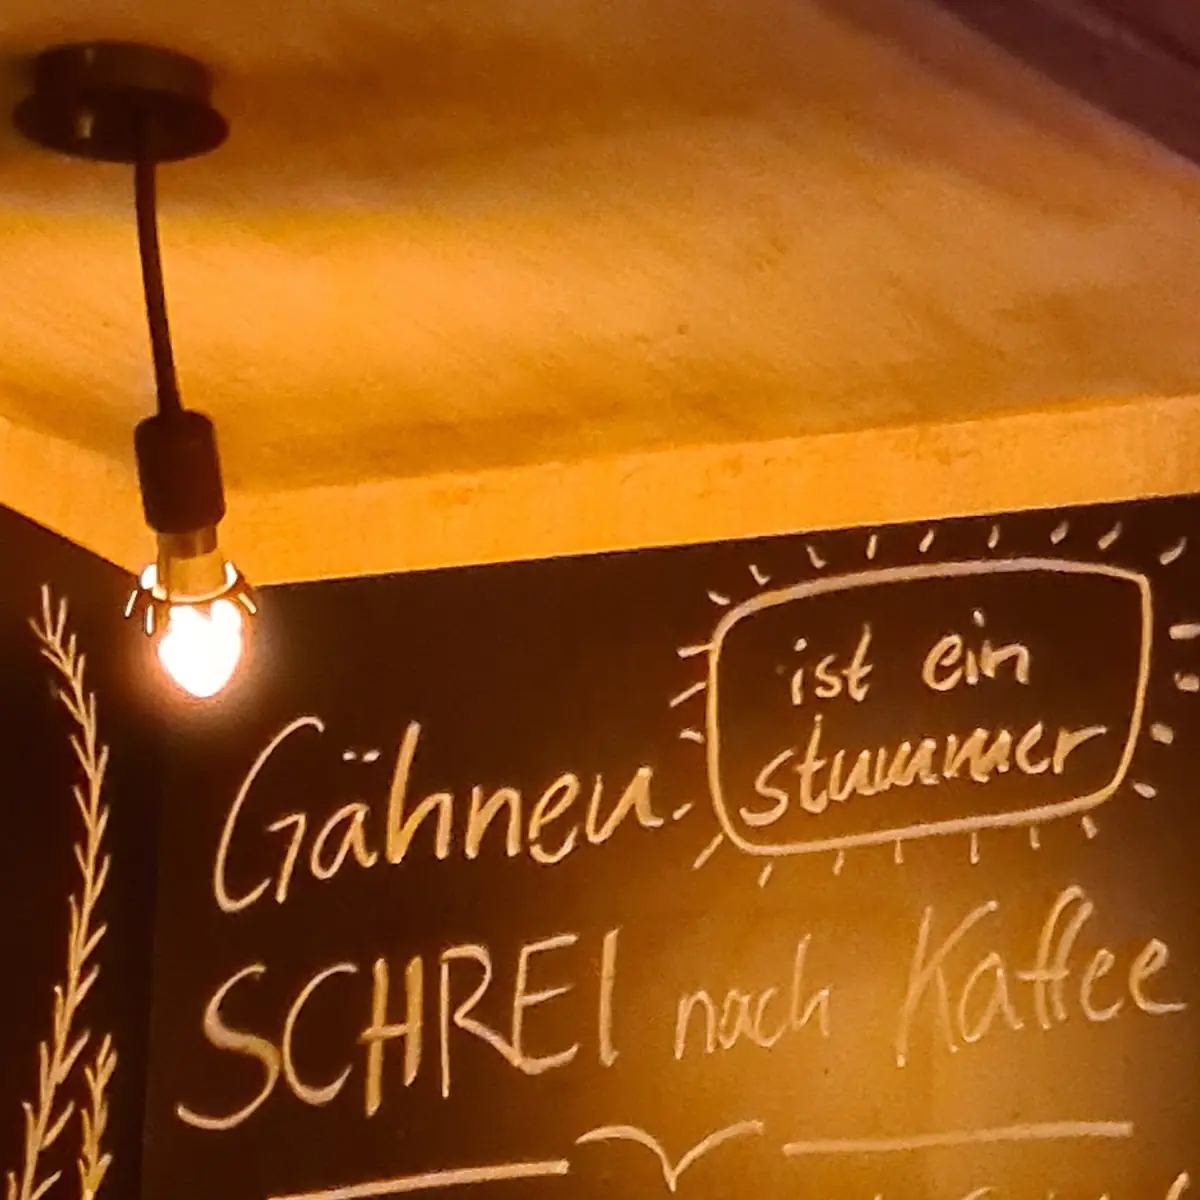 Gähnen
ist ein
stummer
SCHREI nach Kaffee